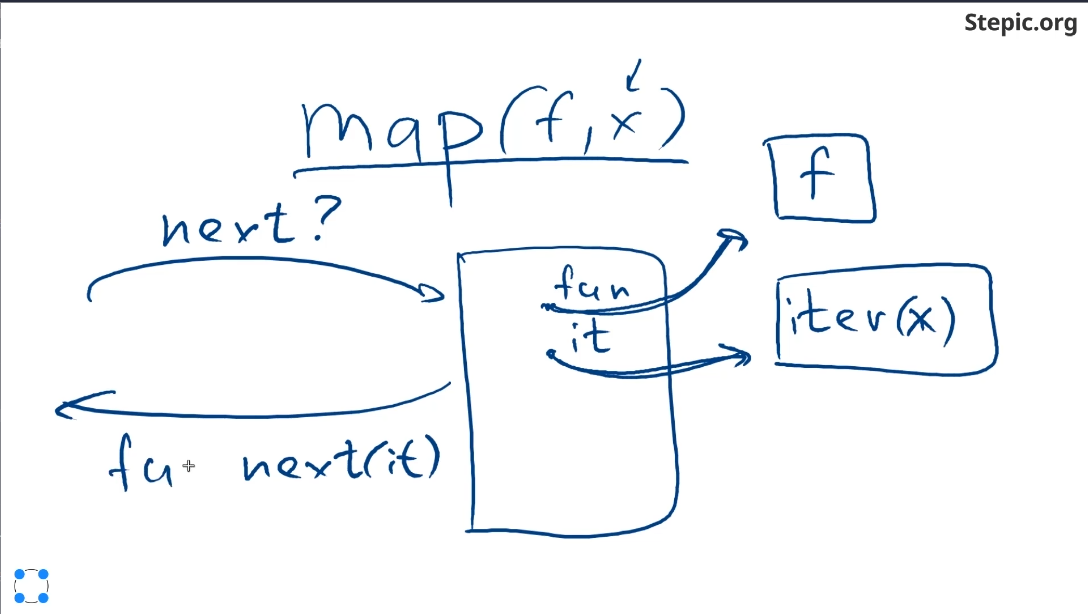 Stepic.org
map(f,x)
f
next?
fun
it
iter(x)
fu next(it)